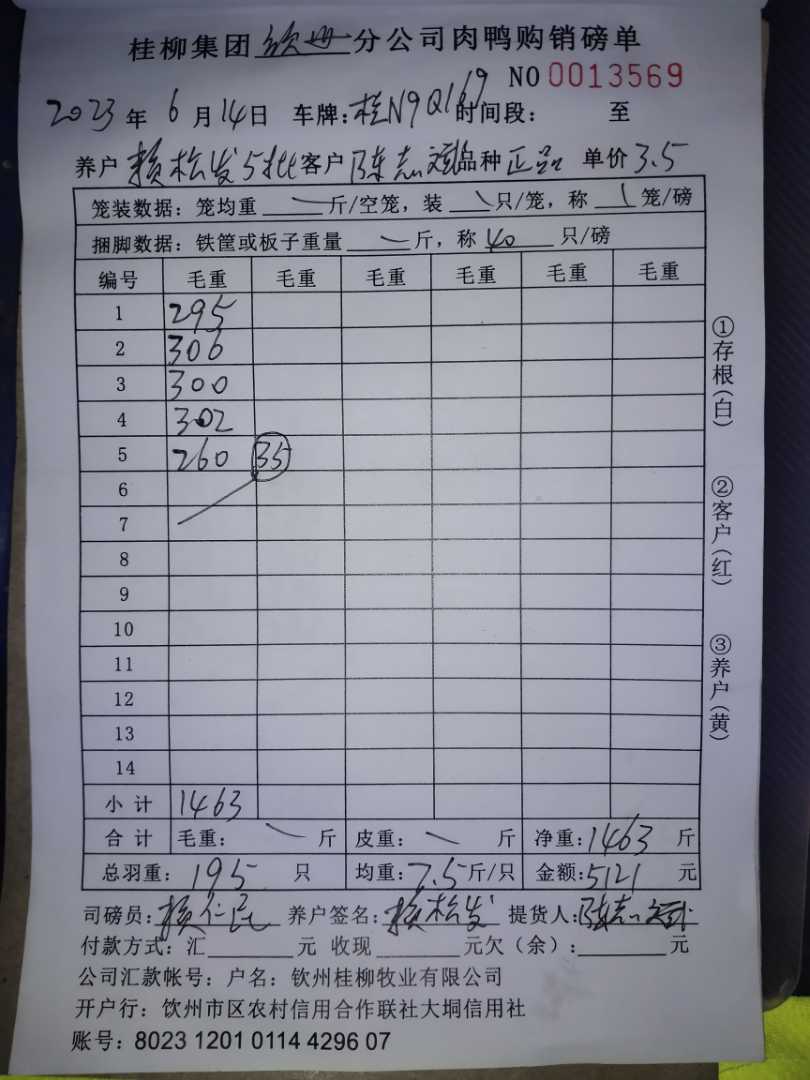 桂柳集团 钦州 分公司肉鸭购销磅单
NO 0013569
2023 年 6 月 14 日 车牌: 桂N9Q169 时间段: 至
养户 赖松发5批 客户 陈志斌 品种 正品 单价 3.5
笼装数据: 笼均重 \ 斤/空笼, 装 \ 只/笼, 称 \ 笼/磅
捆脚数据: 铁筐或板子重量 \ 斤, 称 40 只/磅
编号 毛重 毛重 毛重 毛重 毛重 毛重
1 295
2 306
3 300
4 302
5 260 35
6
7
8
9
10
11
12
13
14
小 计 1463
合 计 毛重: \ 斤 皮重: \ 斤 净重: 1463 斤
总羽重: 195 只 均重: 7.5 斤/只 金额: 5121 元
司磅员: 赖仁 养户签名: 赖松发 提货人: 陈志斌
付款方式: 汇 元 收现 元欠(余): 元
公司汇款帐号: 户名: 钦州桂柳牧业有限公司
开户行: 钦州市区农村信用合作联社大垌信用社
账号: 8023 1201 0114 4296 07
①存根(白)
②客户(红)
③养户(黄)